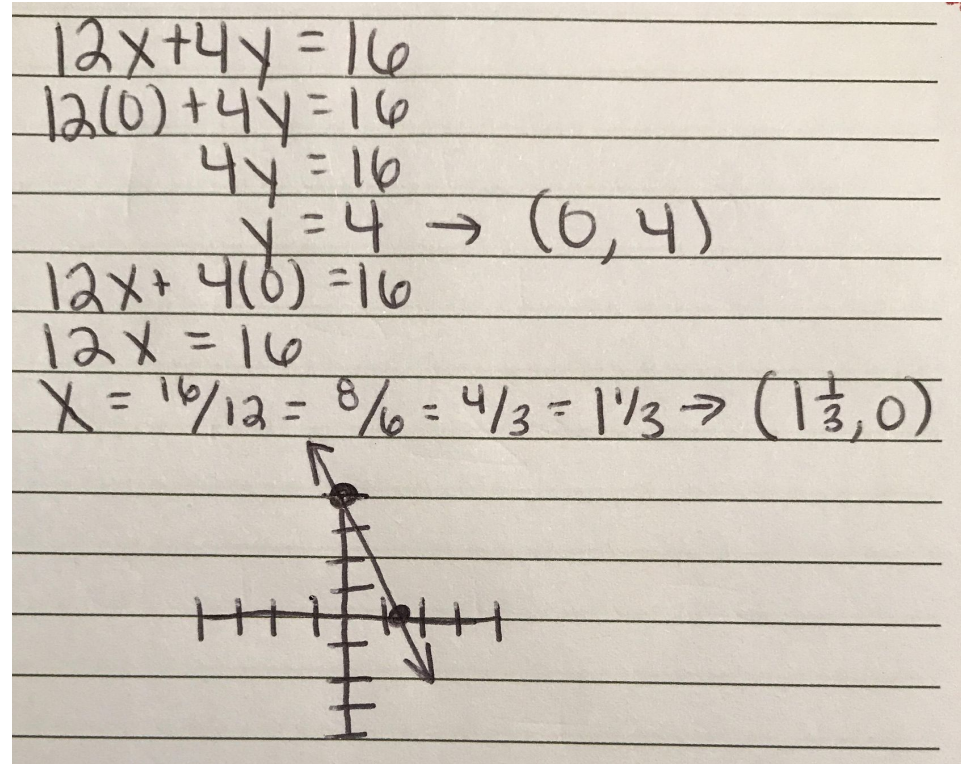 12x+4y = 16
12(0) +4y = 16
4y = 16
y = 4 → (0, 4)
12x+ 4(0) =16
12x = 16
x = 16/12 = 8/6 = 4/3 = 1 1/3 → (1 1/3, 0)